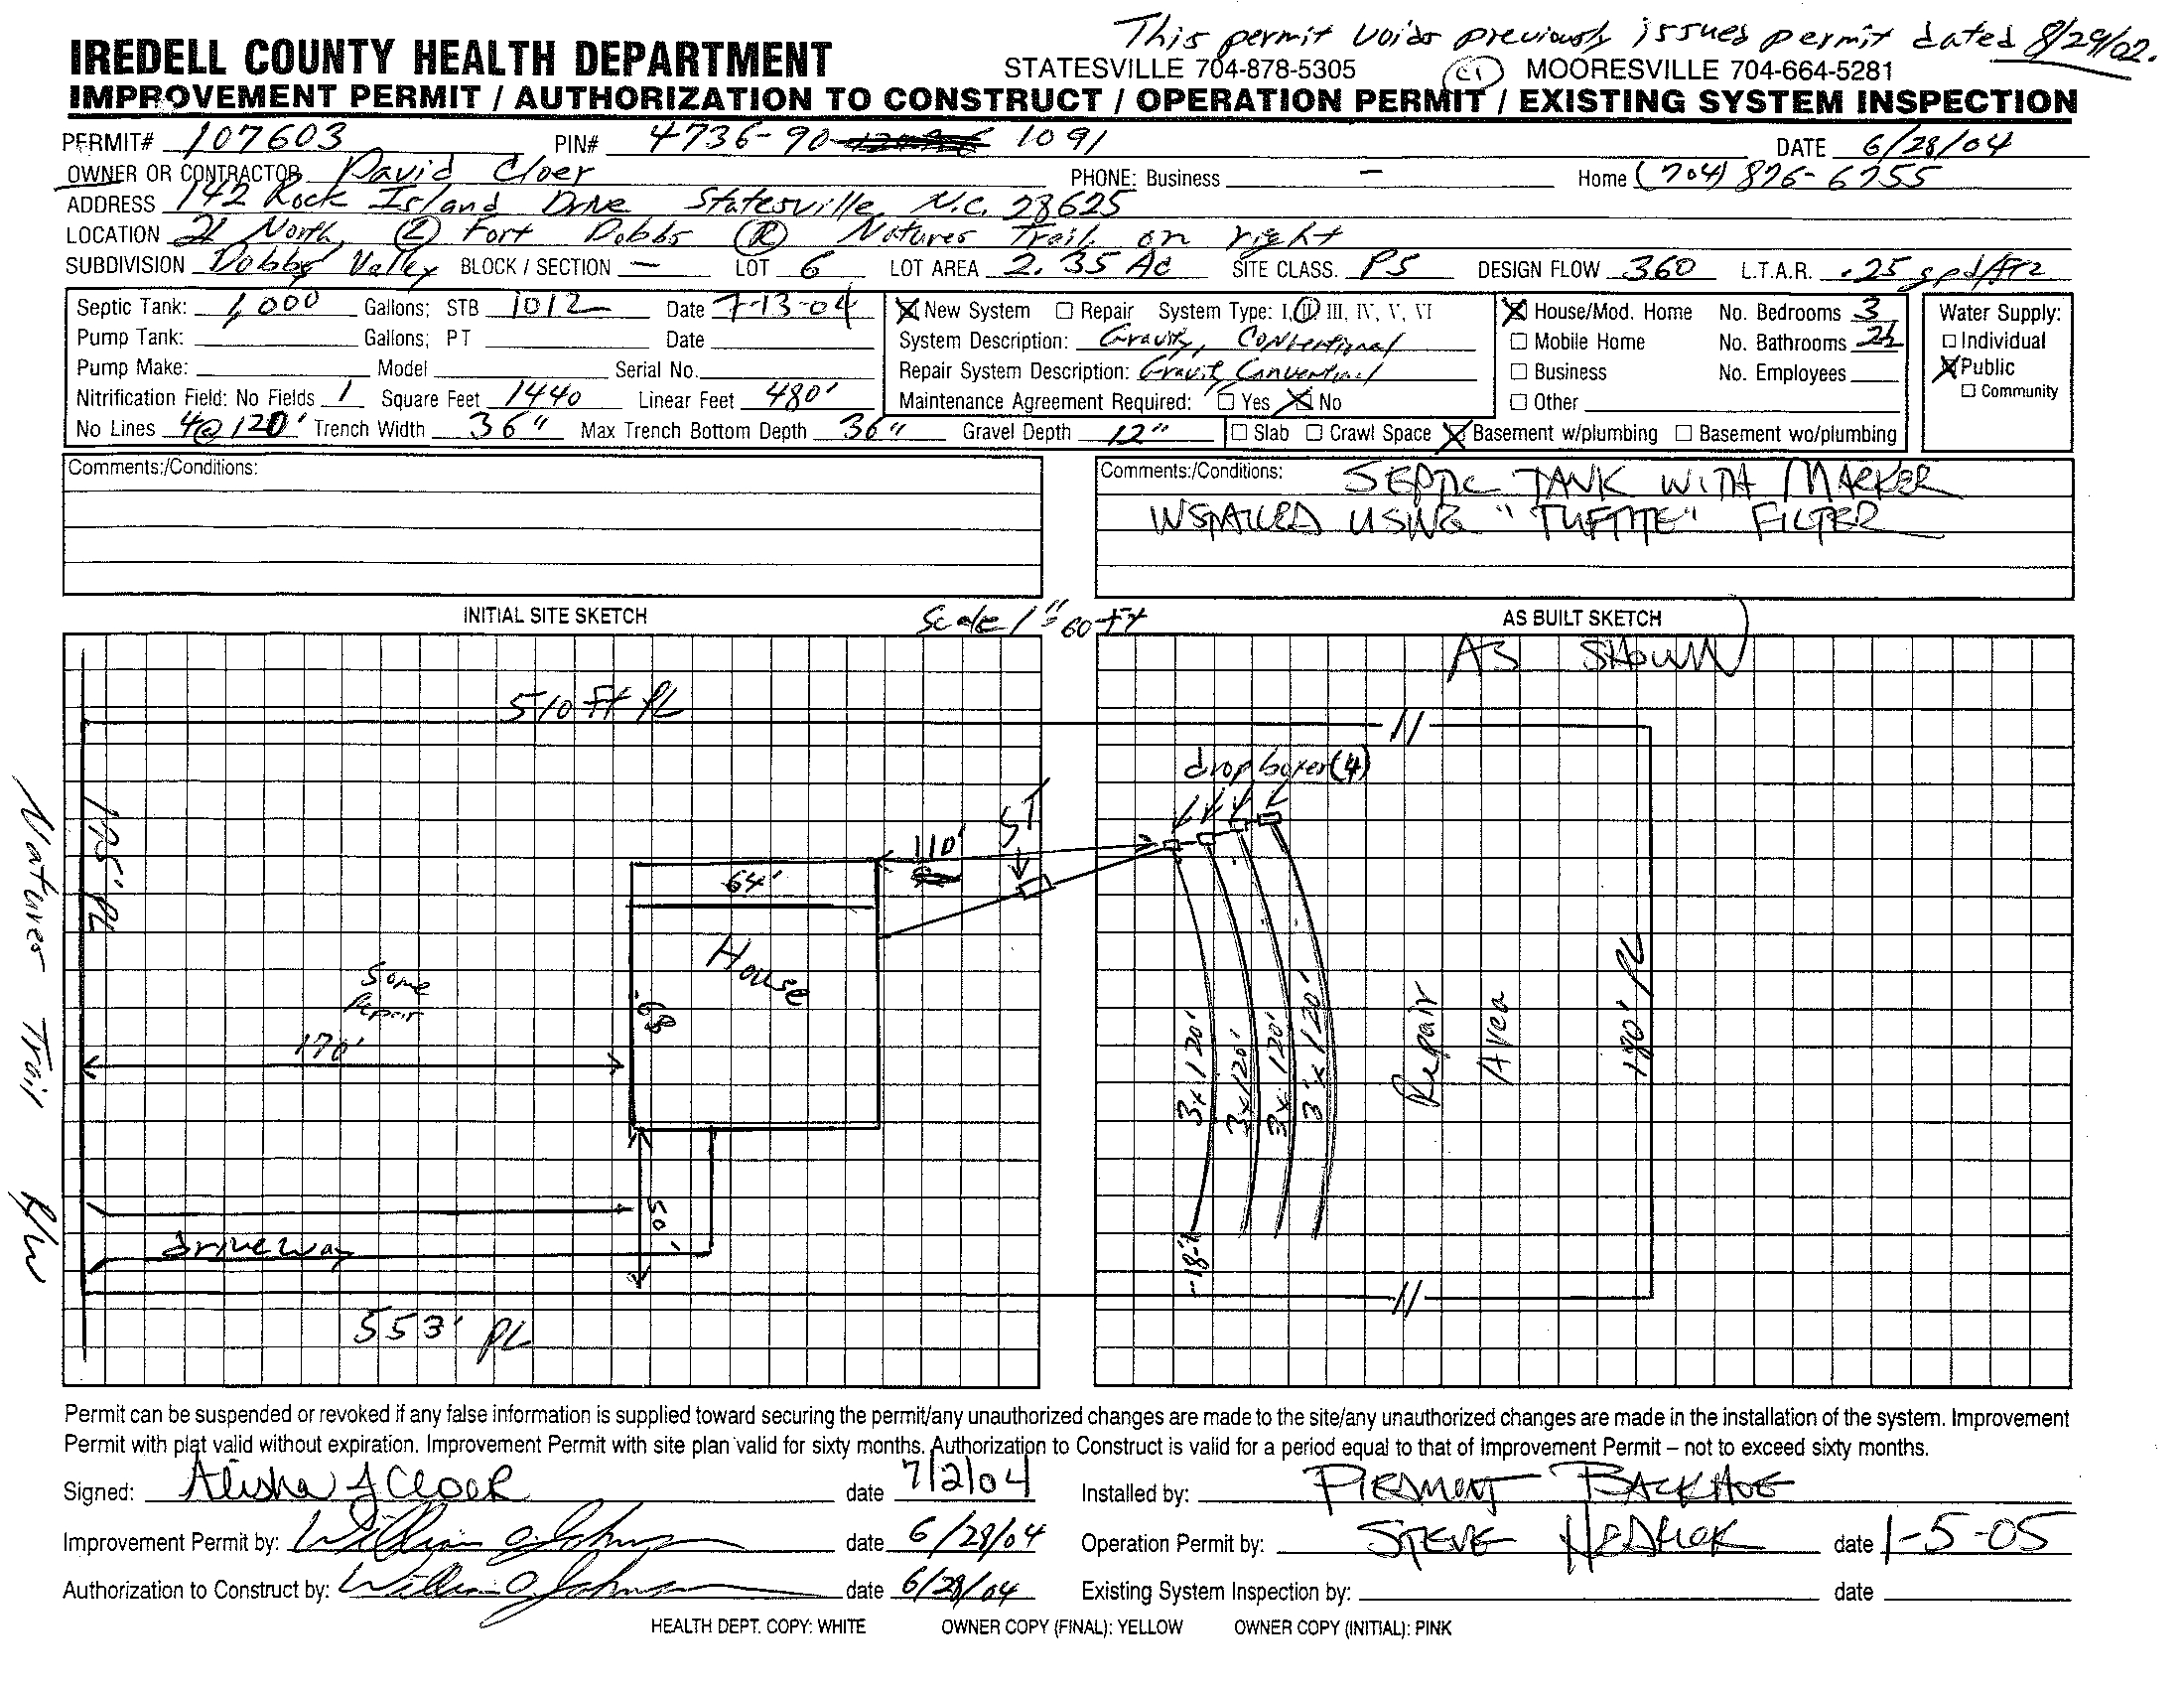 This permit voids previously issued permit dated 8/29/02.
IREDELL COUNTY HEALTH DEPARTMENT STATESVILLE 704-878-5305 MOORESVILLE 704-664-5281
IMPROVEMENT PERMIT / AUTHORIZATION TO CONSTRUCT / OPERATION PERMIT / EXISTING SYSTEM INSPECTION
PERMIT# 107603 PIN# 4736-90- 1091 DATE 6/28/04
OWNER OR CONTRACTOR David Cloer PHONE: Business — Home (704) 876-6755
ADDRESS 142 Rock Island Drive Statesville, N.C. 28625
LOCATION 21 North, (L) Fort Dobbs (R) Natures Trail on right
SUBDIVISION Dobbs Valley BLOCK / SECTION — LOT 6 LOT AREA 2.35 Ac SITE CLASS. PS DESIGN FLOW 360 L.T.A.R. .25 gpd/ft2
Septic Tank: 1,000 Gallons; STB 1012 Date 7-13-04 New System Repair System Type: I, II, III, IV, V, VI House/Mod. Home No. Bedrooms 3 Water Supply:
Pump Tank: Gallons; PT Date System Description: Gravity, Conventional Mobile Home No. Bathrooms 2½ Individual
Pump Make: Model Serial No. Repair System Description: Gravity Conventional Business No. Employees Public
Nitrification Field: No Fields 1 Square Feet 1440 Linear Feet 480' Maintenance Agreement Required: Yes No Other Community
No Lines 4@120' Trench Width 36" Max Trench Bottom Depth 36" Gravel Depth 12" Slab Crawl Space Basement w/plumbing Basement wo/plumbing
Comments:/Conditions:
Comments:/Conditions: SEPTIC TANK WITH MARKER
INSTALLED USING "TUFTITE" FILTER
INITIAL SITE SKETCH Scale 1"=60 ft AS BUILT SKETCH
AS SHOWN
510 ft PL
drop boxes (4)
ST
110'
64'
195' PL
Natures Trail R/W
House
68'
Some Repair
170'
3x120'
3x120'
3x120'
3'x120'
Repair Area
180' PL
50'
driveway
18'
553' PL
Permit can be suspended or revoked if any false information is supplied toward securing the permit/any unauthorized changes are made to the site/any unauthorized changes are made in the installation of the system. Improvement
Permit with plat valid without expiration. Improvement Permit with site plan valid for sixty months. Authorization to Construct is valid for a period equal to that of Improvement Permit – not to exceed sixty months.
Signed: Alisha J Cloer date 7/2/04 Installed by: PIEDMONT BACKHOE
Improvement Permit by: William J Johnson date 6/28/04 Operation Permit by: STEVE HEDRICK date 1-5-05
Authorization to Construct by: William J Johnson date 6/28/04 Existing System Inspection by: date
HEALTH DEPT. COPY: WHITE OWNER COPY (FINAL): YELLOW OWNER COPY (INITIAL): PINK